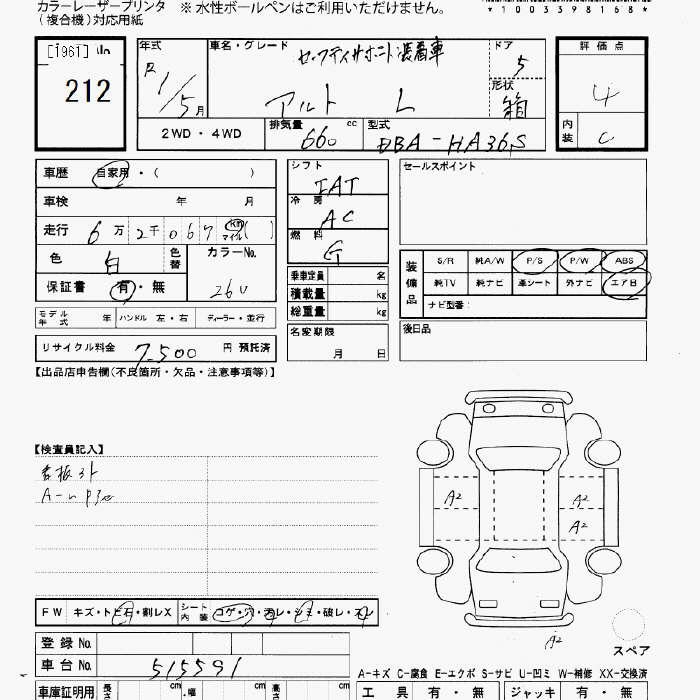 カラーレーザープリンタ ※ 水性ボールペンはご利用いただけません。
(複合機)対応用紙
*1003398168*
[1961]
212
年式 R1/5月
車名・グレード セーフティサポート装着車
アルト L
ドア 5
形状 箱
2WD・4WD
排気量 660 cc
型式 DBA-HA36S
評価点 4
内装 C
車歴 自家用・( )
車検 年 月
走行 6万2千067 km マイル( )
色 白 色替
カラーNo. 26U
保証書 有・無
モデル年式 年 ハンドル 左・右 ディーラー・並行
リサイクル料金 7,500 円 預託済
シフト IAT
冷房 AC
燃料 G
乗車定員 名
積載量 kg
総重量 kg
名変期限
月 日
セールスポイント
装備品
S/R 純A/W P/S P/W ABS
純TV 純ナビ 革シート 外ナビ エアB
ナビ型番:
後日品
【出品店申告欄(不良箇所・欠品・注意事項等)】
【検査員記入】
看板跡
A2
A2
A2
A2
スペア
FW キズ・トビ石・割レX シート内装 コゲ・穴・汚レ・シミ・破レ・スレ
登録No.
車台No. 515591
A-キズ C-腐食 E-エクボ S-サビ U-凹ミ W-補修 XX-交換済
車庫証明用 長さ cm ・幅 cm 高さ cm
工具 有・無 ジャッキ 有・無